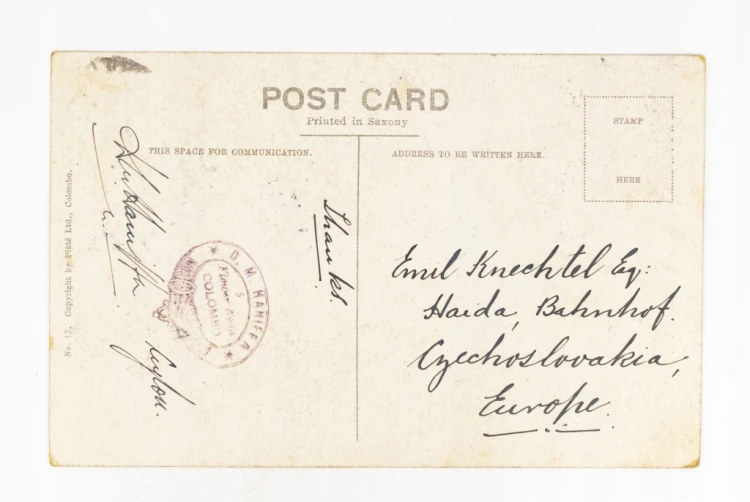 POST CARD
Printed in Saxony
THIS SPACE FOR COMMUNICATION.
ADDRESS TO BE WRITTEN HERE.
STAMP
HERE
No. 13. Copyright by Plâté Ltd., Colombo.
Haniffa
Ceylon.
Thanks.
M. HANIFFA
5
COLOMBO
Emil Knechtel Eq:
Haida, Bahnhof.
Czechoslovakia,
Europe.